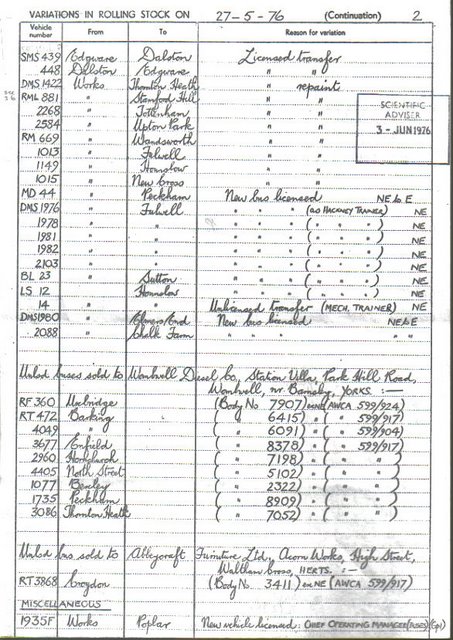 VARIATIONS IN ROLLING STOCK ON 27-5-76 (Continuation) 2
Vehicle number From To Reason for variation
SMS 439 Edgware Dalston Licensed transfer
448 Dalston Edgware " "
DMS 1422 Works Thornton Heath " repaint
RML 881 " Stamford Hill " "
2268 " Tottenham " "
2584 " Upton Park " "
RM 669 " Wandsworth " "
1013 " Fulwell " "
1149 " Hounslow " "
1015 " New Cross " "
MD 44 " Peckham New bus licensed NE to E
DMS 1976 " Fulwell " " " (as HACKNEY TRAINER) NE
1978 " " " " " ( " " ) NE
1981 " " " " " ( " " ) NE
1982 " " " " " ( " " ) NE
2103 " " " " " ( " " ) NE
BL 23 " Sutton " " " ( " " ) NE
LS 12 " Hounslow " " " ( " " ) NE
14 " " Unlicensed transfer (MECH. TRAINER) NE
DMS 1980 " Elmers End New bus licensed NE to E
2088 " Chalk Farm " " " "
SCIENTIFIC
ADVISER
3 - JUN 1976
Unlsd buses sold to Wombwell Diesel Co., Station Villa, Park Hill Road,
Wombwell, nr Barnsley, YORKS. :—
RF 360 Uxbridge (Body No 7907) ex NE (AWCA 599/924)
RT 472 Barking ( " 6415) " ( " 599/917)
4049 " ( " 6091) " ( " 599/904)
3677 Enfield ( " 8378) " ( " 599/917)
2960 Hornchurch ( " 7198) " ( " " )
4405 North Street ( " 5102) " ( " " )
1077 Bexley ( " 2322) " ( " " )
1735 Peckham ( " 8909) " ( " " )
3086 Thornton Heath ( " 7052) " ( " " )
Unlsd bus sold to Abbeycraft Furniture Ltd., Acorn Works, High Street,
Waltham Cross, HERTS. :—
RT 3868 Croydon (Body No 3411) ex NE (AWCA 599/917)
MISCELLANEOUS
1935F Works Poplar New vehicle licensed: CHIEF OPERATING MANAGER (BUSES)